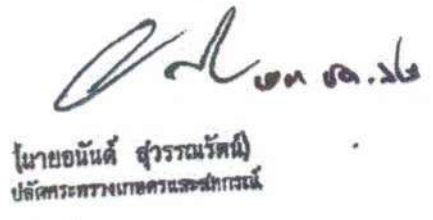 ๒๓ ธค. ๖๒
(นายอนันต์ สุวรรณรัตน์)
ปลัดกระทรวงเกษตรและสหกรณ์